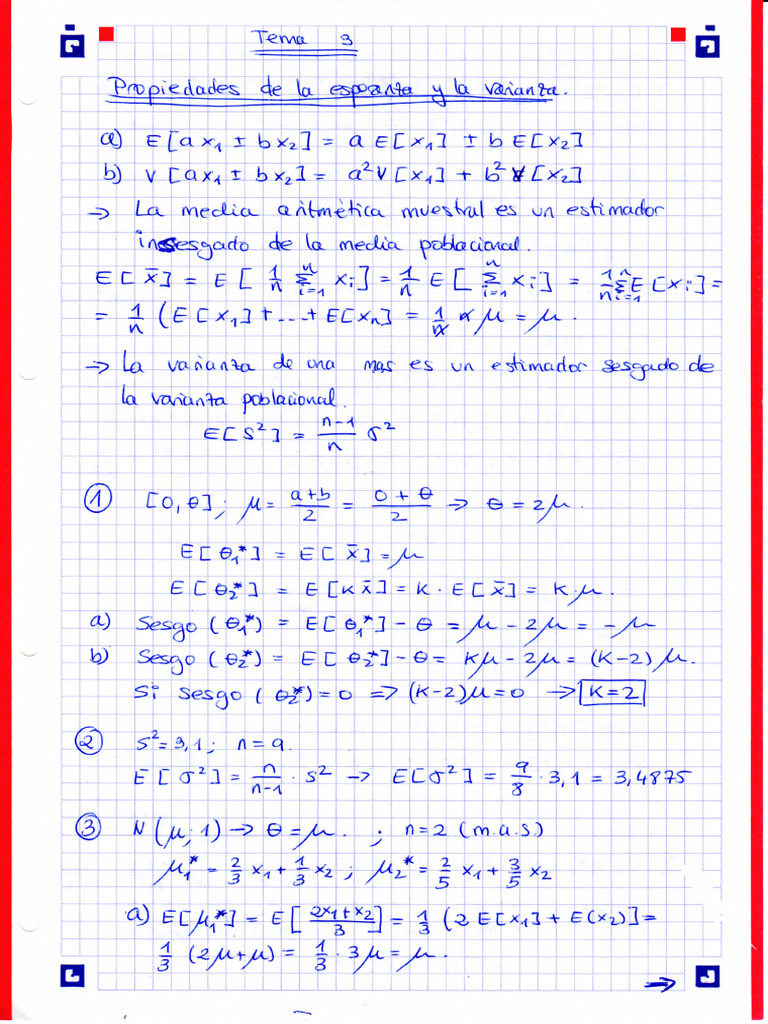 Tema 3
Propiedades de la esperanza y la varianza.
a) E[ax₁ ± bx₂] = a E[x₁] ± b E[x₂]
b) V[ax₁ ± bx₂] = a²V[x₁] + b²V[x₂]
→ La media aritmética muestral es un estimador
insesgado de la media poblacional.
E[x̄] = E[1/n Σᵢ₌₁ⁿ xᵢ] = 1/n E[Σᵢ₌₁ⁿ xᵢ] = 1/n Σᵢ₌₁ⁿ E[xᵢ] =
= 1/n (E[x₁] + ... + E[xₙ] = 1/n n μ = μ.
→ La varianza de una mas es un estimador sesgado de
la varianza poblacional.
E[S²] = n-1/n σ²
① [0, θ]; μ = a+b/2 = 0+θ/2 → θ = 2μ.
E[θ₁*] = E[x̄] = μ
E[θ₂*] = E[K x̄] = K · E[x̄] = K·μ.
a) Sesgo (θ₁*) = E[θ₁*] - θ = μ - 2μ = -μ
b) Sesgo (θ₂*) = E[θ₂*] - θ = Kμ - 2μ = (K-2) μ.
Si sesgo (θ₂*) = 0 => (K-2)μ = 0 → K=2
② S² = 3,1; n = 9.
E[σ²] = n/n-1 · S² → E[σ²] = 9/8 · 3,1 = 3,4875
③ N(μ; 1) → θ = μ. ; n=2 (m.a.s.)
μ₁* = 2/3 x₁ + 1/3 x₂ ; μ₂* = 2/5 x₁ + 3/5 x₂
a) E[μ₁*] = E[2x₁+x₂/3] = 1/3 (2 E[x₁] + E(x₂)] =
1/3 (2μ+μ) = 1/3 · 3μ = μ.
→